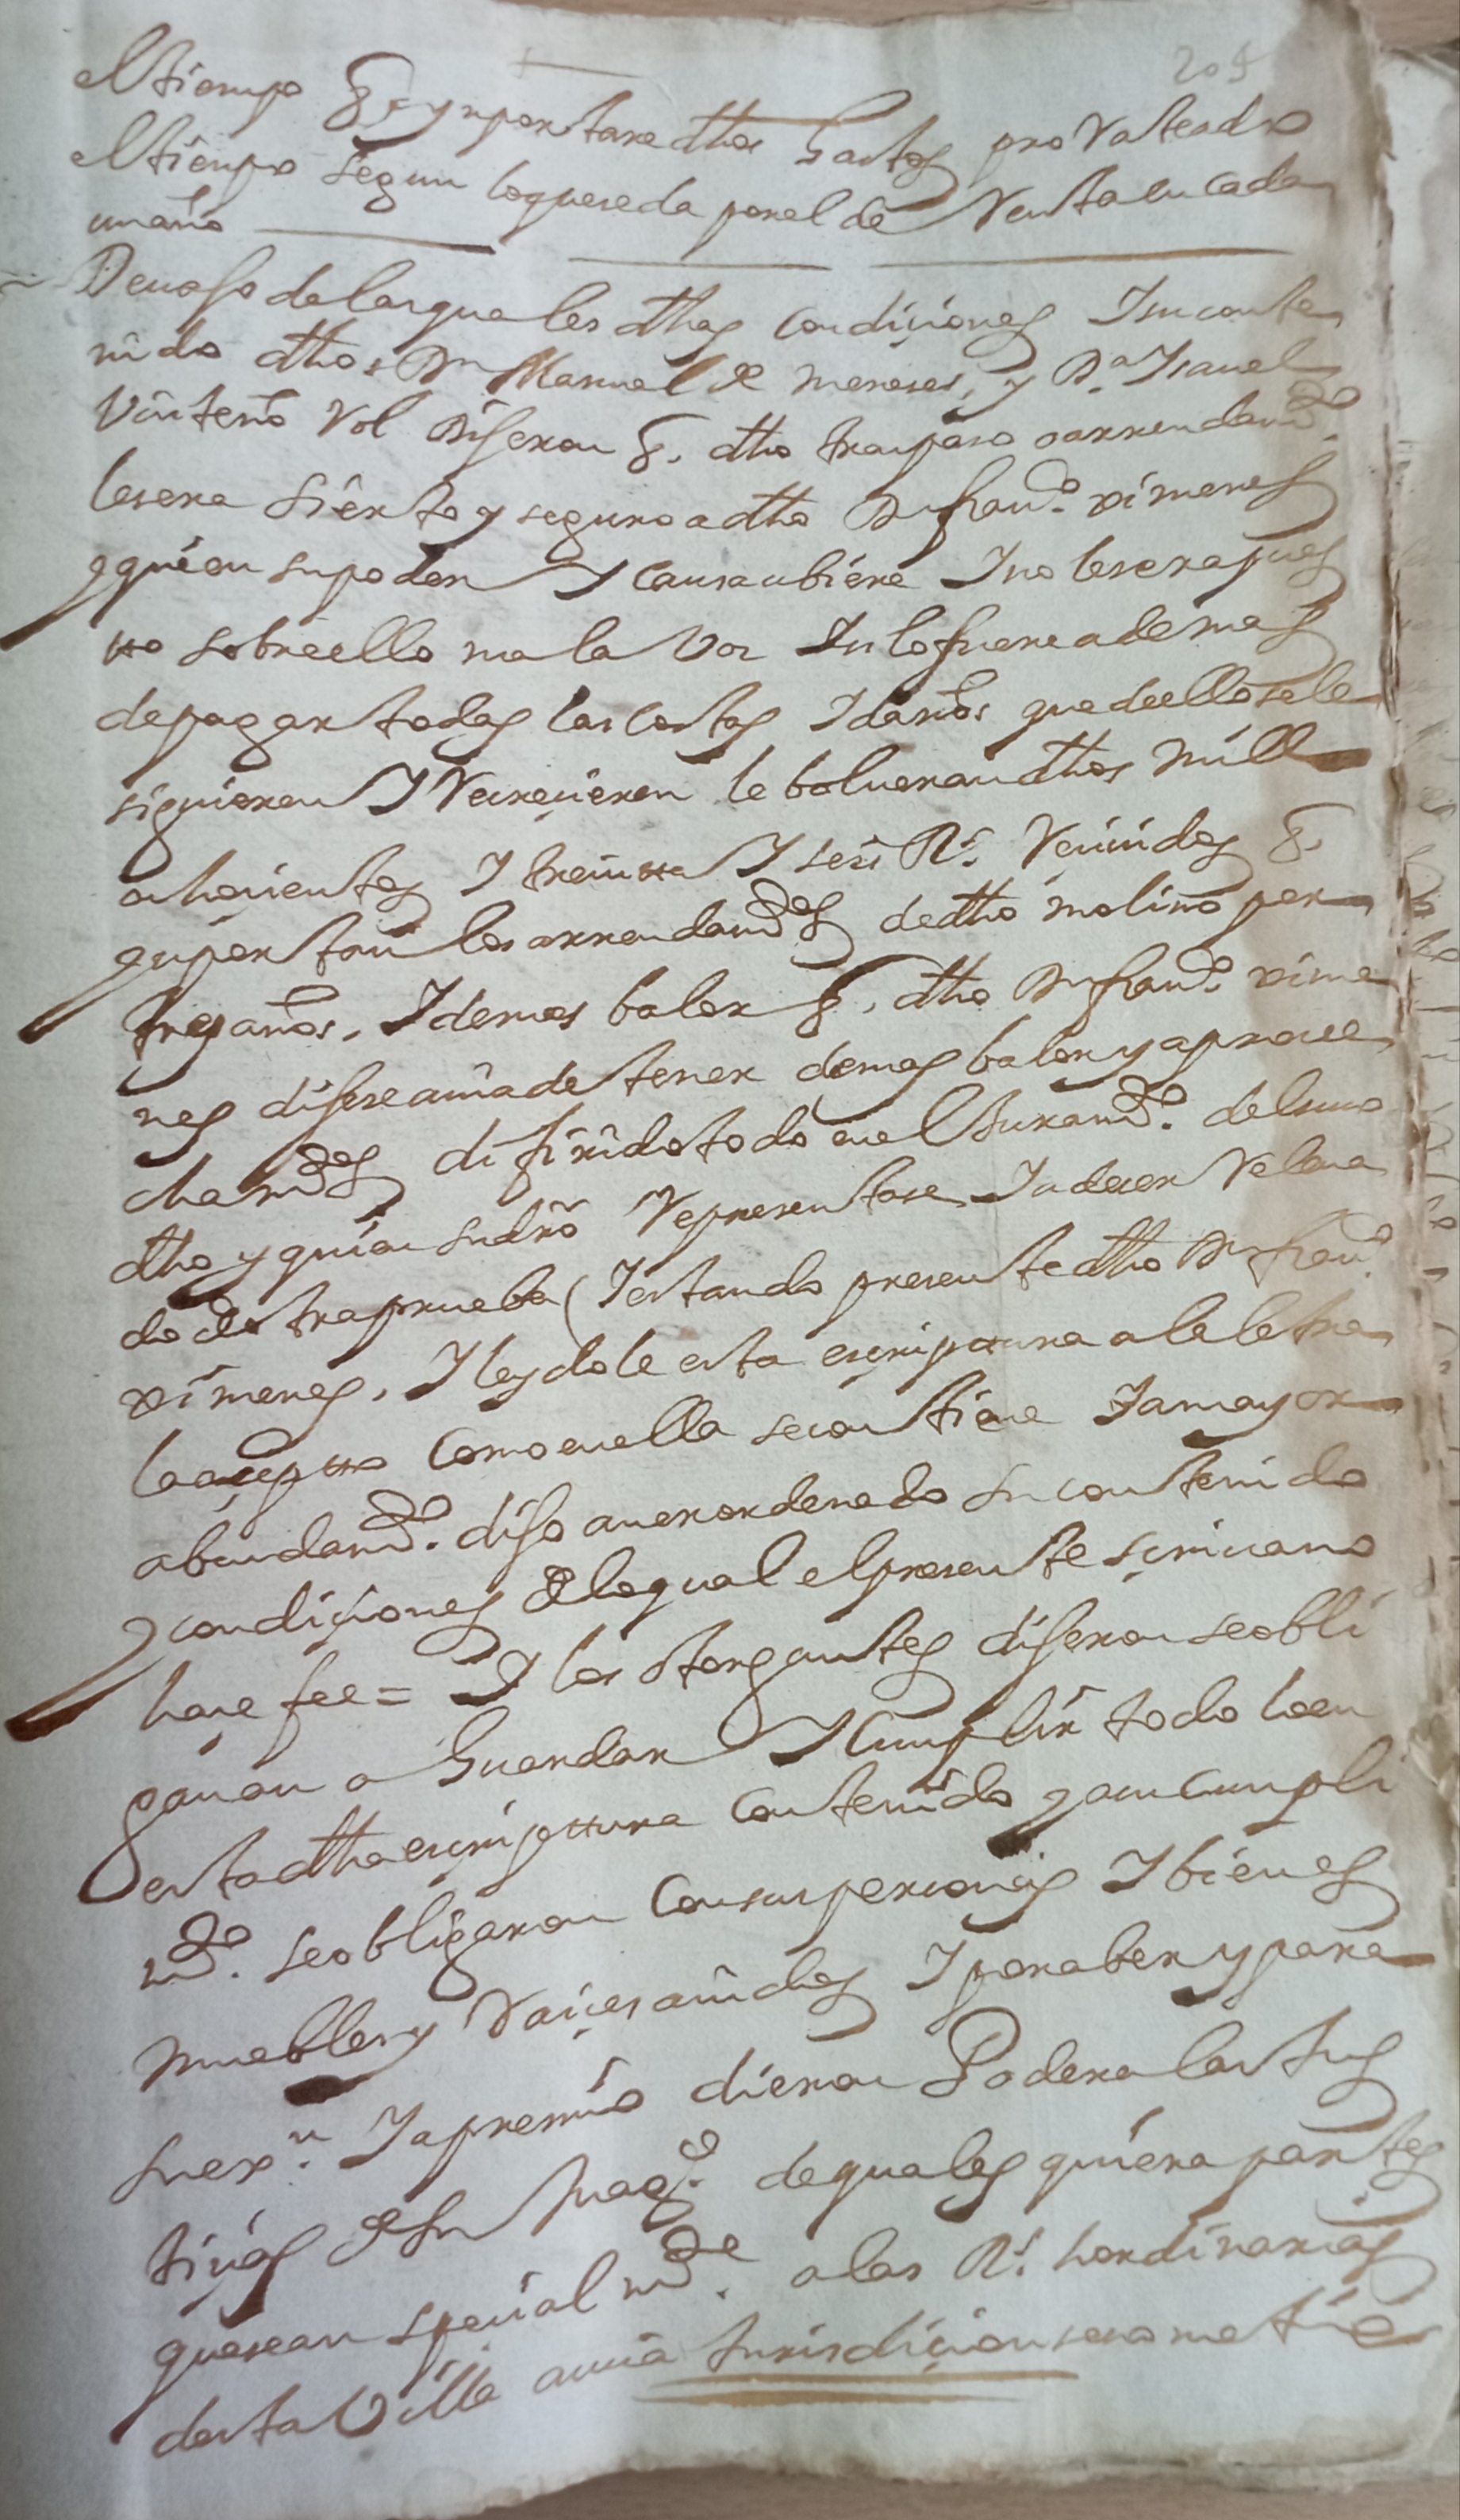 209
el tiempo q. ymportare dhos Gastos prorrateado
el tiempo segun loquese da por el de Renta en cada
un año
Devajo de las quales dhas condiçiones I su conte
nido dhos Dn Manuel de meneses, y Da Isauel
Vinteño Vol Dijeron q. dho traspaso o arrendamto.
le sera Sierto y seguro a dho Dn franco. ximenes
y quien su poder I Causa ubiere I no le sera pues
tto sobre ello mala Voz I si lo fuere ademas
de pagar todas las Costas I daños que de ello se le
siguieren I Recreçieren le bolueran dhos mill
ochoçientos I treintta I seis Rs. Reciuidos q.
ynportan los arrendamtos de dho molino por
tres años, I demas balor q. dho Dn franco. xime
nes dijere auia de tener demas balor y aproue
chamtos diferido todo en el Juramto. del suso
dho y quien su dro Representare I a de ser Releua
do de otra prueba (I estando presente dho Dn franco
ximenes, I leydole esta escripttura a la letra
la açeptto Como en ella se contiene I a mayor
abundamto. dijo auer ordenado su contenido
y condiçiones de lo qual el presente scriuano
haçe fee = I los otorgantes dijeron se obli
gauan a Guardar I Cumplir todo lo en
esta dha escripttura Contenido y a su Cumpli
mto. se obligaron Con sus personas I bienes
muebles y Raiçes auidos I por aber y para
su exon. I apremio dieron Poder a las Jus
tiçias de su Magd. de quales quiera partes
que sean speçial mte. a las Rs. hordinarias
desta Villa a cuia Jurisdiçion se sometie